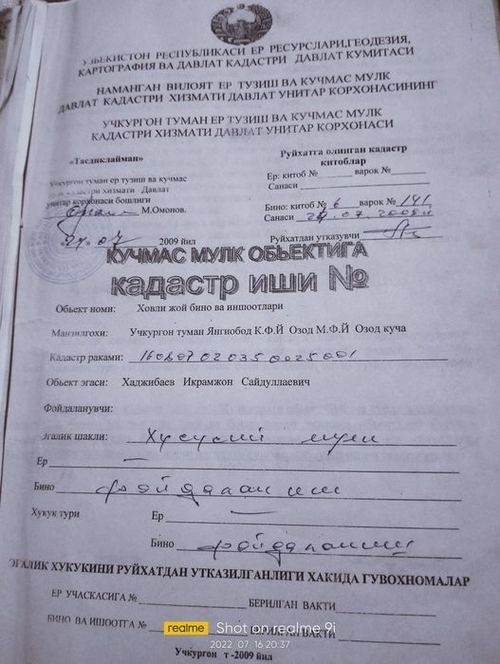 УЗБЕКИСТОН РЕСПУБЛИКАСИ ЕР РЕСУРСЛАРИ,ГЕОДЕЗИЯ,
КАРТОГРАФИЯ ВА ДАВЛАТ КАДАСТРИ ДАВЛАТ КУМИТАСИ
НАМАНГАН ВИЛОЯТ ЕР ТУЗИШ ВА КУЧМАС МУЛК
ДАВЛАТ КАДАСТРИ ХИЗМАТИ ДАВЛАТ УНИТАР КОРХОНАСИНИНГ
УЧКУРГОН ТУМАН ЕР ТУЗИШ ВА КУЧМАС МУЛК
КАДАСТРИ ХИЗМАТИ ДАВЛАТ УНИТАР КОРХОНАСИ
«Тасдиклайман»
Учкургон туман ер тузиш ва кучмас
мулк кадастри хизмати Давлат
унитар корхонаси бошлиги
М.Омонов.
27.07 2009 йил
Руйхатга олинган кадастр
китоблар
Ер: китоб № варок №
Санаси
Бино: китоб № 6 варок № 141
Санаси 27.07.2009й
Руйхатдан утказувчи
КУЧМАС МУЛК ОБЬЕКТИГА
кадастр иши №
Обьект номи: Ховли жой бино ва иншоотлари
Манзилгохи: Учкургон туман Янгиобод К.Ф.Й Озод М.Ф.Й Озод куча
Кадастр раками: 160607020350025001
Обьект эгаси: Хаджибаев Икрамжон Сайдуллаевич
Фойдаланувчи:
Эгалик шакли: Хусусий мулк
Ер —
Бино фойдаланиш
Хукук тури Ер —
Бино фойдаланиш
ЭГАЛИК ХУКУКИНИ РУЙХАТДАН УТКАЗИЛГАНЛИГИ ХАКИДА ГУВОХНОМАЛАР
ЕР УЧАСКАСИГА № БЕРИЛГАН ВАКТИ
БИНО ВА ИШООТГА № ВАКТИ
realme Shot on realme 9i
2022.07.16 20:37
Учкургон т -2009 йил